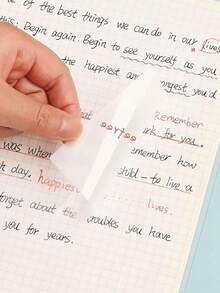 of the best things we can do in our lives
this: Begin again. Begin to see yourself as you
the happiest and youngest you'd
Remember
work for you.
was when remember how
child - to live a
day. happiest lives.
forget about the troubles you have
you for years.